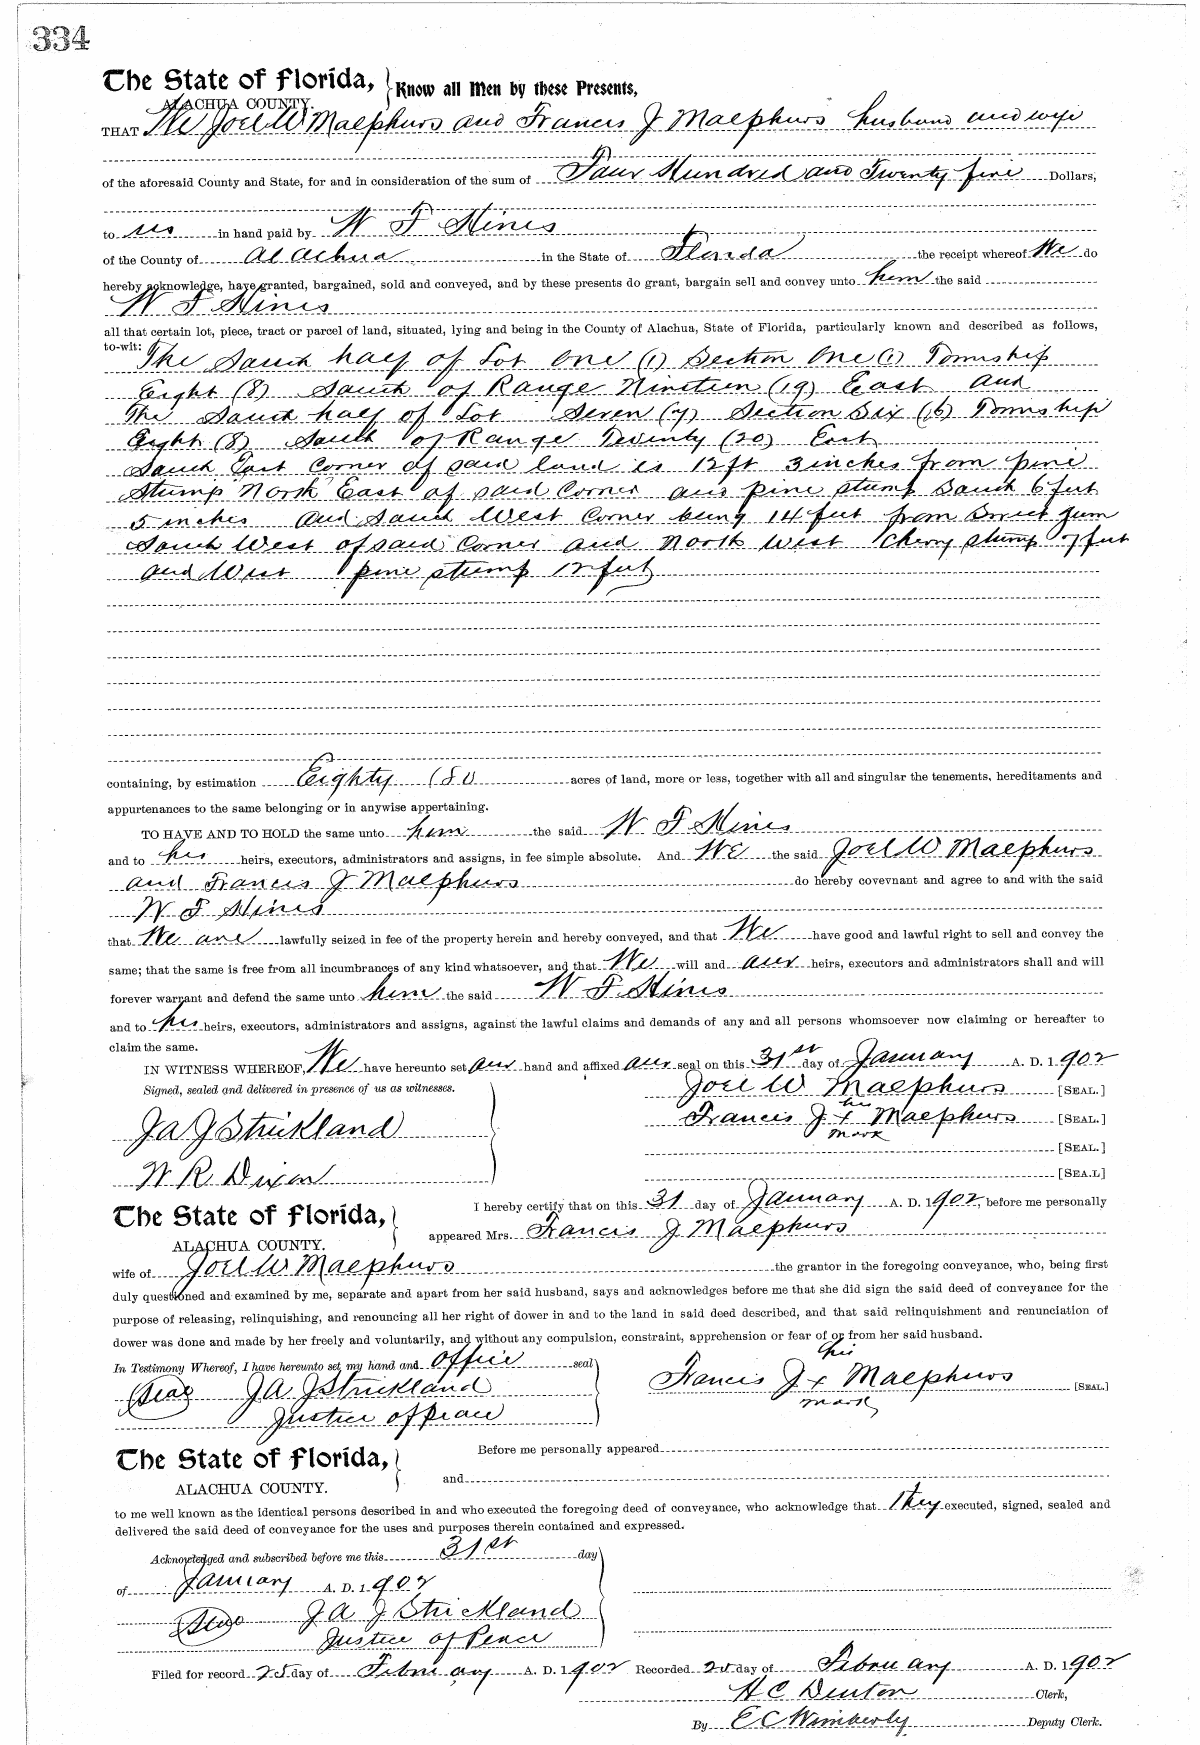 334
The State of Florida,
Know all Men by these Presents,
ALACHUA COUNTY.
THAT We Joel W Maephurs and Francis J Maephurs husband and wife
of the aforesaid County and State, for and in consideration of the sum of Four Hundred and Twenty five Dollars,
to us in hand paid by W F Hines
of the County of Alachua in the State of Florida the receipt whereof We do
hereby acknowledge, have granted, bargained, sold and conveyed, and by these presents do grant, bargain sell and convey unto him the said
W F Hines
all that certain lot, piece, tract or parcel of land, situated, lying and being in the County of Alachua, State of Florida, particularly known and described as follows,
to-wit: The South half of Lot One (1) Section One (1) Township
Eight (8) South of Range Nineteen (19) East and
The South half of Lot Seven (7) Section Six (6) Township
Eight (8) South of Range Twenty (20) East
South East Corner of said land is 12ft 3 inches from pine
Stump North East of said Corner and pine stump South 6 feet
5 inches and South West Corner being 14 feet from Sweet Gum
South West of said Corner and North West Cherry stump 7 feet
and West pine stump 12 feet
containing, by estimation Eighty (80 acres of land, more or less, together with all and singular the tenements, hereditaments and
appurtenances to the same belonging or in anywise appertaining.
TO HAVE AND TO HOLD the same unto him the said W F Hines
and to his heirs, executors, administrators and assigns, in fee simple absolute. And We the said Joel W Maephurs
and Francis J Maephurs do hereby covevnant and agree to and with the said
W F Hines
that We are lawfully seized in fee of the property herein and hereby conveyed, and that We have good and lawful right to sell and convey the
same; that the same is free from all incumbrances of any kind whatsoever, and that We will and our heirs, executors and administrators shall and will
forever warrant and defend the same unto him the said W F Hines
and to his heirs, executors, administrators and assigns, against the lawful claims and demands of any and all persons whomsoever now claiming or hereafter to
claim the same.
IN WITNESS WHEREOF, We have hereunto set our hand and affixed our seal on this 31st day of January A. D. 1902
Signed, sealed and delivered in presence of us as witnesses.
Joel W Maephurs [SEAL.]
his
Francis J x Maephurs [SEAL.]
mark
J A J Strickland
[SEAL.]
W R Dixon
[SEA.L]
I hereby certify that on this 31 day of January A. D. 1902, before me personally
The State of Florida,
ALACHUA COUNTY.
appeared Mrs. Francis J Maephurs
wife of Joel W Maephurs the grantor in the foregoing conveyance, who, being first
duly questioned and examined by me, separate and apart from her said husband, says and acknowledges before me that she did sign the said deed of conveyance for the
purpose of releasing, relinquishing, and renouncing all her right of dower in and to the land in said deed described, and that said relinquishment and renunciation of
dower was done and made by her freely and voluntarily, and without any compulsion, constraint, apprehension or fear of or from her said husband.
In Testimony Whereof, I have hereunto set my hand and office seal
his
Francis J x Maephurs [SEAL.]
mark
(Seal) J A J Strickland
Justice of Peace
The State of Florida,
ALACHUA COUNTY.
Before me personally appeared
and
to me well known as the identical persons described in and who executed the foregoing deed of conveyance, who acknowledge that They executed, signed, sealed and
delivered the said deed of conveyance for the uses and purposes therein contained and expressed.
Acknowledged and subscribed before me this 31st day
of January A. D. 1902
(Seal) J A J Strickland
Justice of Peace
Filed for record 25 day of February A. D. 1902 Recorded 25 day of February A. D. 1902
H C Denton Clerk,
By E C Wimberly Deputy Clerk.